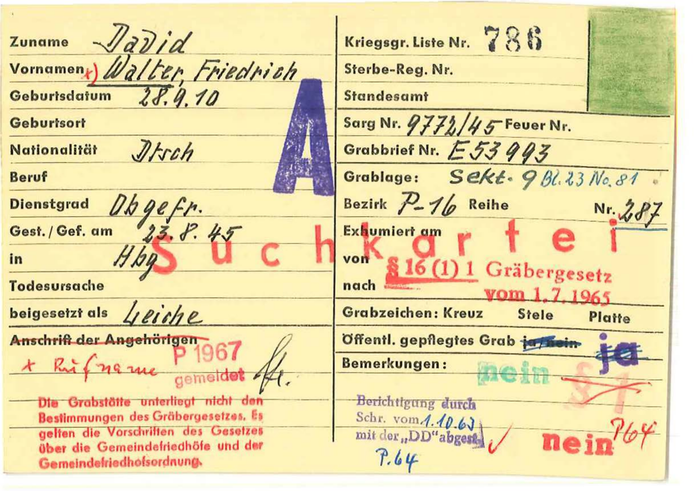 Zuname David
Vornamen x) Walter, Friedrich
Geburtsdatum 28.9.10
Geburtsort
Nationalität Dtsch
Beruf
Dienstgrad Obgefr.
Gest./Gef. am 23.8.45
in Hbg
Todesursache
beigesetzt als Leiche
Anschrift der Angehörigen
x Rufname
P 1967
gemeldet
Die Grabstätte unterliegt nicht den
Bestimmungen des Gräbergesetzes. Es
gelten die Vorschriften des Gesetzes
über die Gemeindefriedhöfe und der
Gemeindefriedhofsordnung.
A
Suchkartei
Kriegsgr. Liste Nr. 786
Sterbe-Reg. Nr.
Standesamt
Sarg Nr. 9772/45 Feuer Nr.
Grabbrief Nr. E53993
Grablage: Sekt. 9 Bl. 23 No. 81
Bezirk P-16 Reihe Nr. 287
Exhumiert am
von
§ 16 (1) 1 Gräbergesetz
nach
vom 1.7.1965
Grabzeichen: Kreuz Stele Platte
Öffentl. gepflegtes Grab ja/nein ja
Bemerkungen:
nein
§ 1
Berichtigung durch
Schr. vom 1.10.63
mit der „DD" abgest.
P.64
nein P64